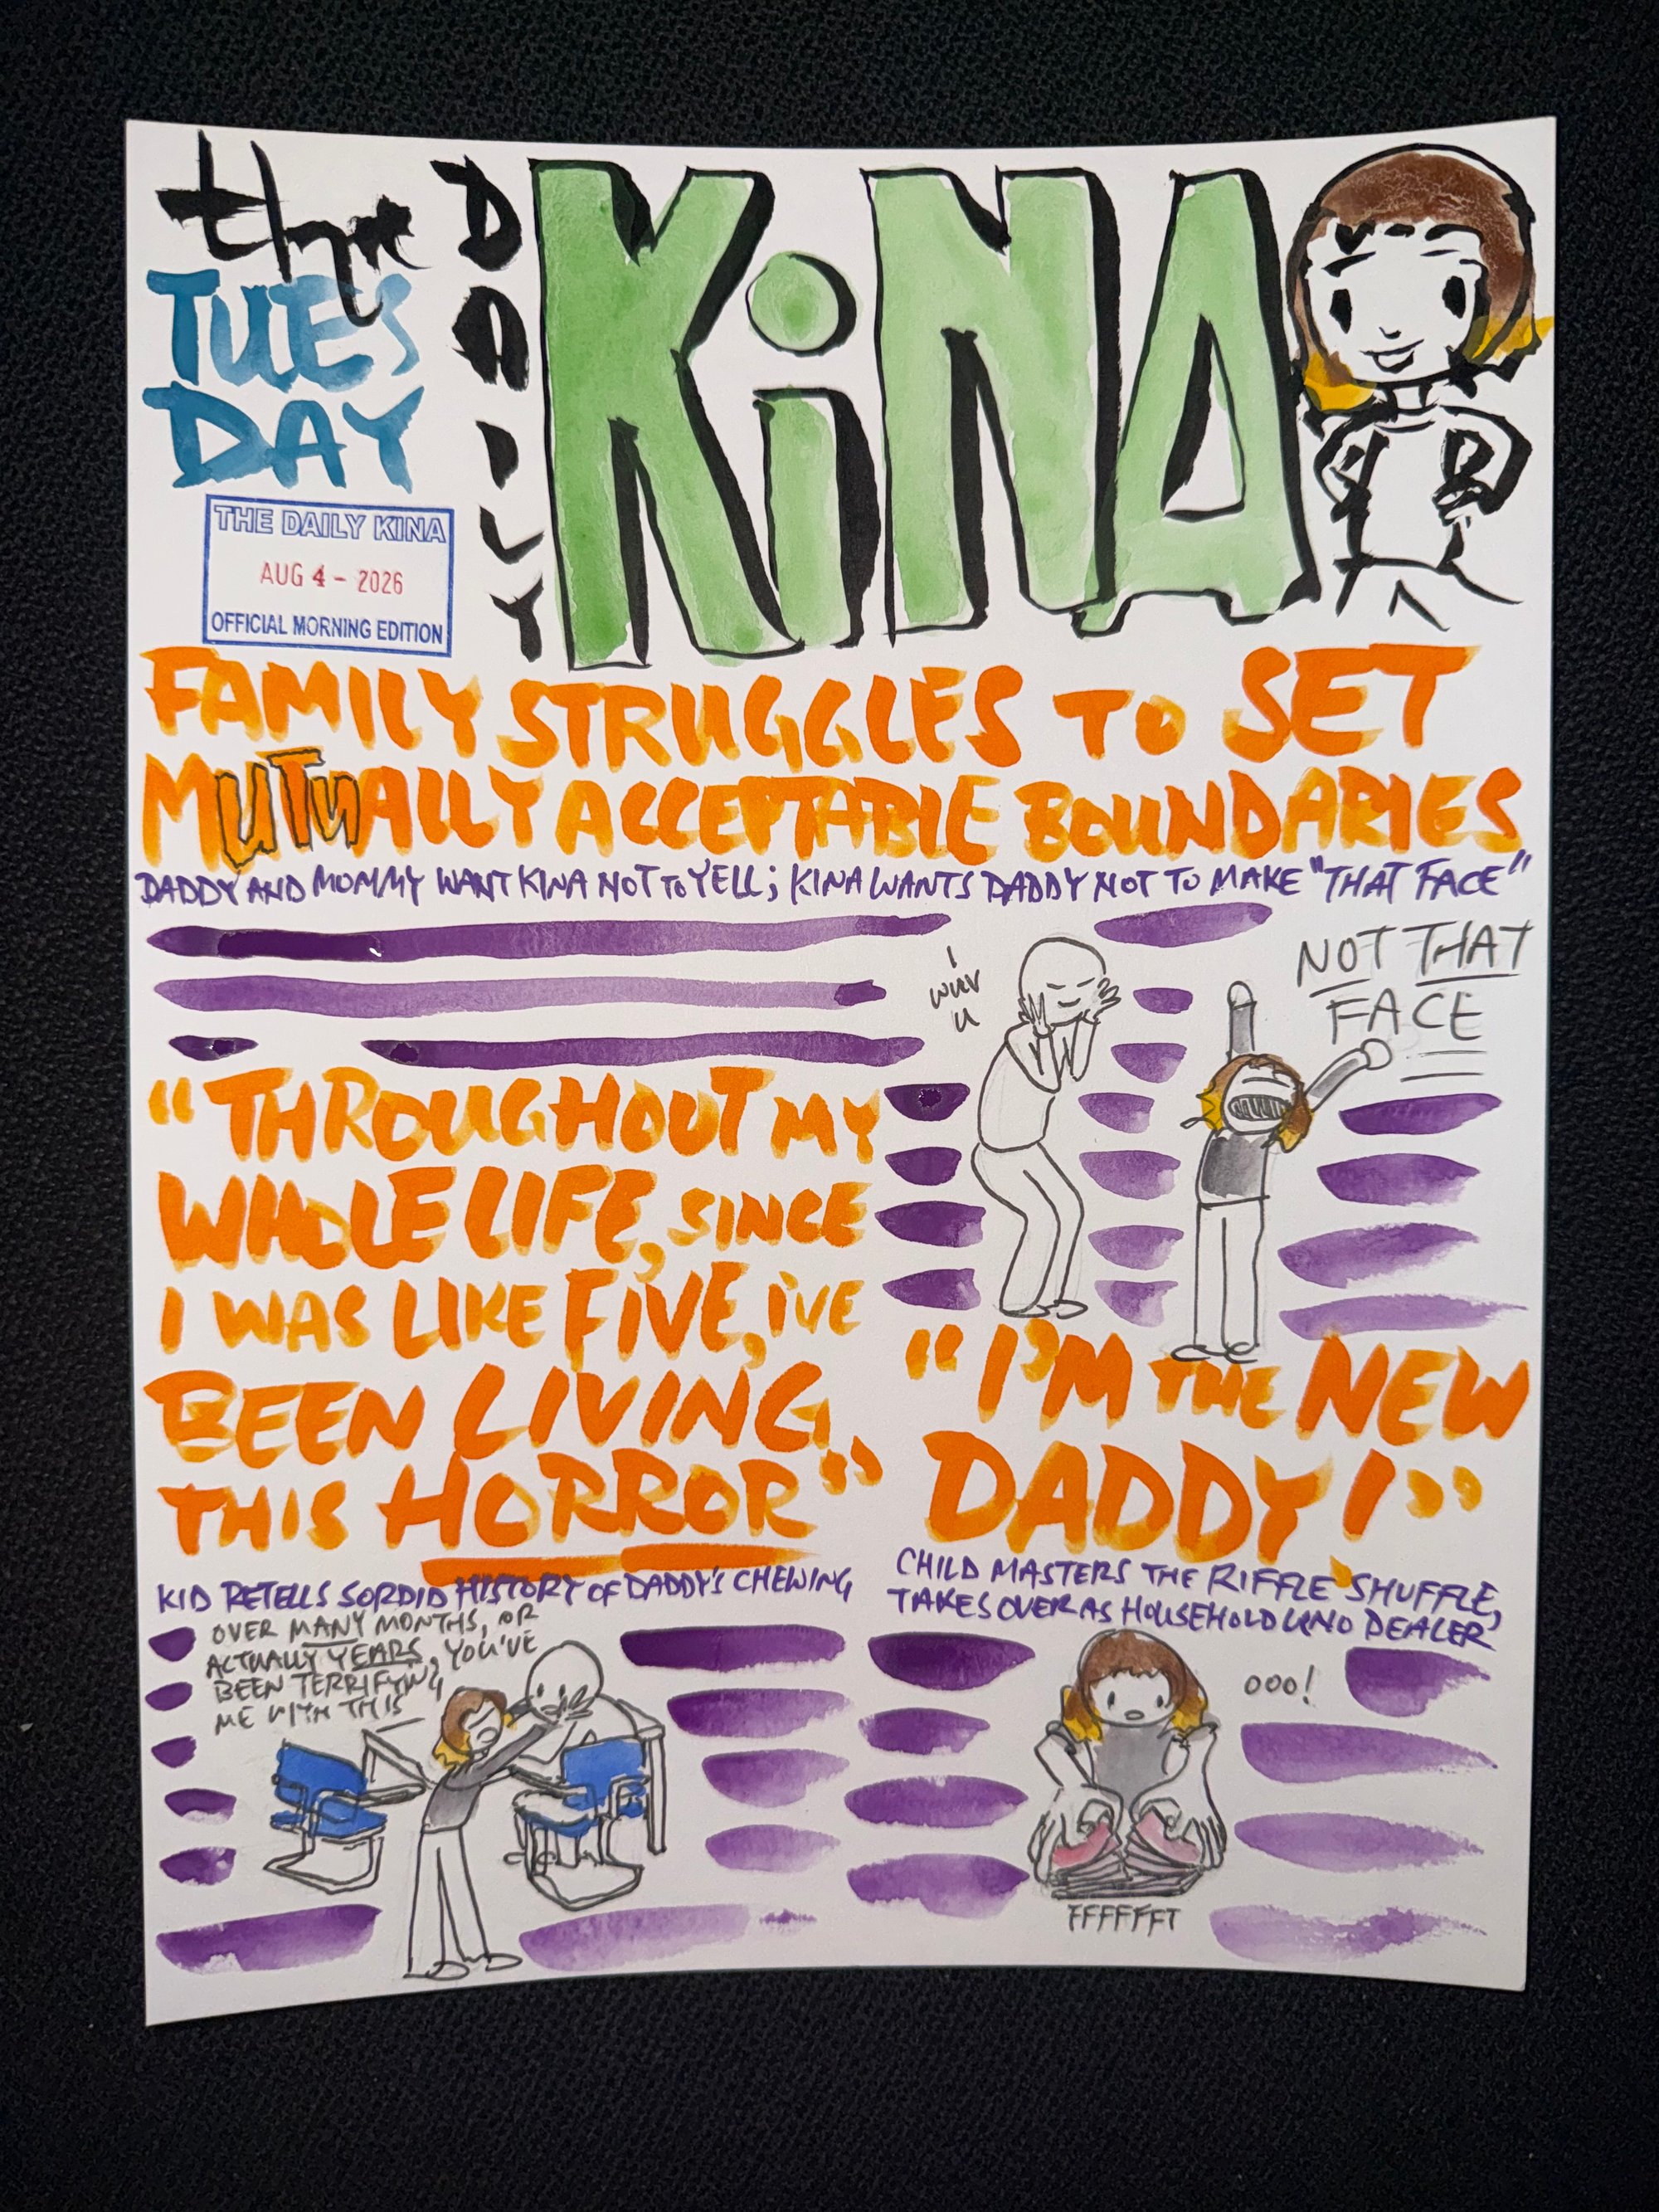 the
TUESDAY
DAILY
KiNA
THE DAILY KINA
AUG 4 - 2026
OFFICIAL MORNING EDITION
FAMILY STRUGGLES TO SET
MUTUALLY ACCEPTABLE BOUNDARIES
DADDY AND MOMMY WANT KINA NOT TO YELL; KINA WANTS DADDY NOT TO MAKE "THAT FACE"
I
wuv
u
NOT THAT
FACE
"THROUGHOUT MY
WHOLE LIFE, SINCE
I WAS LIKE FIVE, i'VE
BEEN LIVING
THIS HORROR"
KID RETELLS SORDID HISTORY OF DADDY'S CHEWING
OVER MANY MONTHS, OR
ACTUALLY YEARS, YOU'VE
BEEN TERRIFYING
ME WITH THIS
"I'M THE NEW
DADDY!"
CHILD MASTERS THE RIFFLE SHUFFLE,
TAKES OVER AS HOUSEHOLD UNO DEALER
ooo!
FFFFFFT